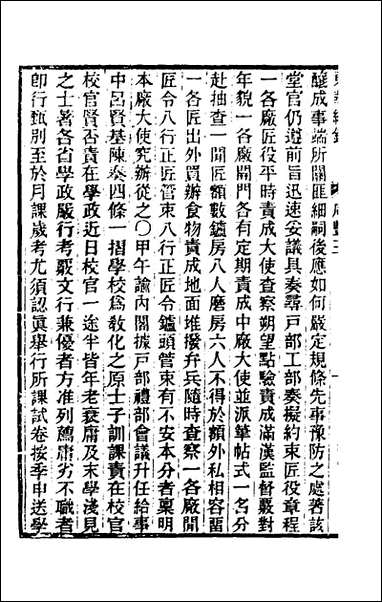 釀成事端所關匪細嗣後應如何嚴定規條先事豫防之處著該
堂官仍遵前旨迅速妥議具奏尋戸部工部奏擬約束匠役章程
一各廠匠役平時責成大使查察朔望點驗責成滿漢監督覈對
年貌一各廠開門各有定期責成中廠大使並派筆帖式一名分
赴抽查一開匠額數鑪房八人磨房六人不得於額外私相容畱
一各匠出外買辦食物責成地面堆撥弁兵隨時查察一各廠開
匠令八行正匠管束八行正匠令鑪頭管束有不安本分者稟明
本廠大使究辦從之〇甲午諭內閣據戸部禮部會議升任給事
中呂賢基陳奏四條一摺學校爲敎化之原士子訓課責在校官
校官賢否責在學政近日校官一途半皆年老衰庸及末學淺見
之士著各省學政嚴行考覈文行兼優者方准列薦庸劣不職者
卽行甄別至於月課歲考尤須認眞舉行所課試卷按季申送學